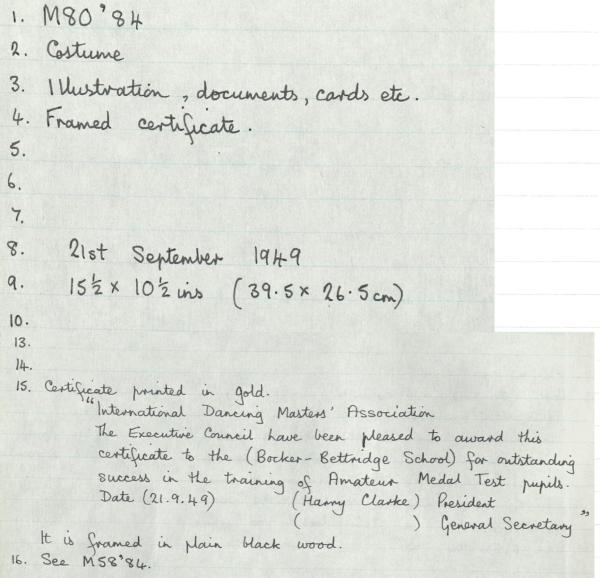 1. M80'84
2. Costume
3. Illustration, documents, cards etc.
4. Framed certificate.
5.
6.
7.
8. 21st September 1949
9. 15½ x 10½ ins (39.5 x 26.5 cm)
10.
13.
14.
15. Certificate printed in gold.
"International Dancing Masters' Association
The Executive Council have been pleased to award this
certificate to the (Bocker-Bettridge School) for outstanding
success in the training of Amateur Medal Test pupils.
Date (21.9.49) (Harry Clarke) President
( ) General Secretary"
It is framed in plain black wood.
16. See M58'84.